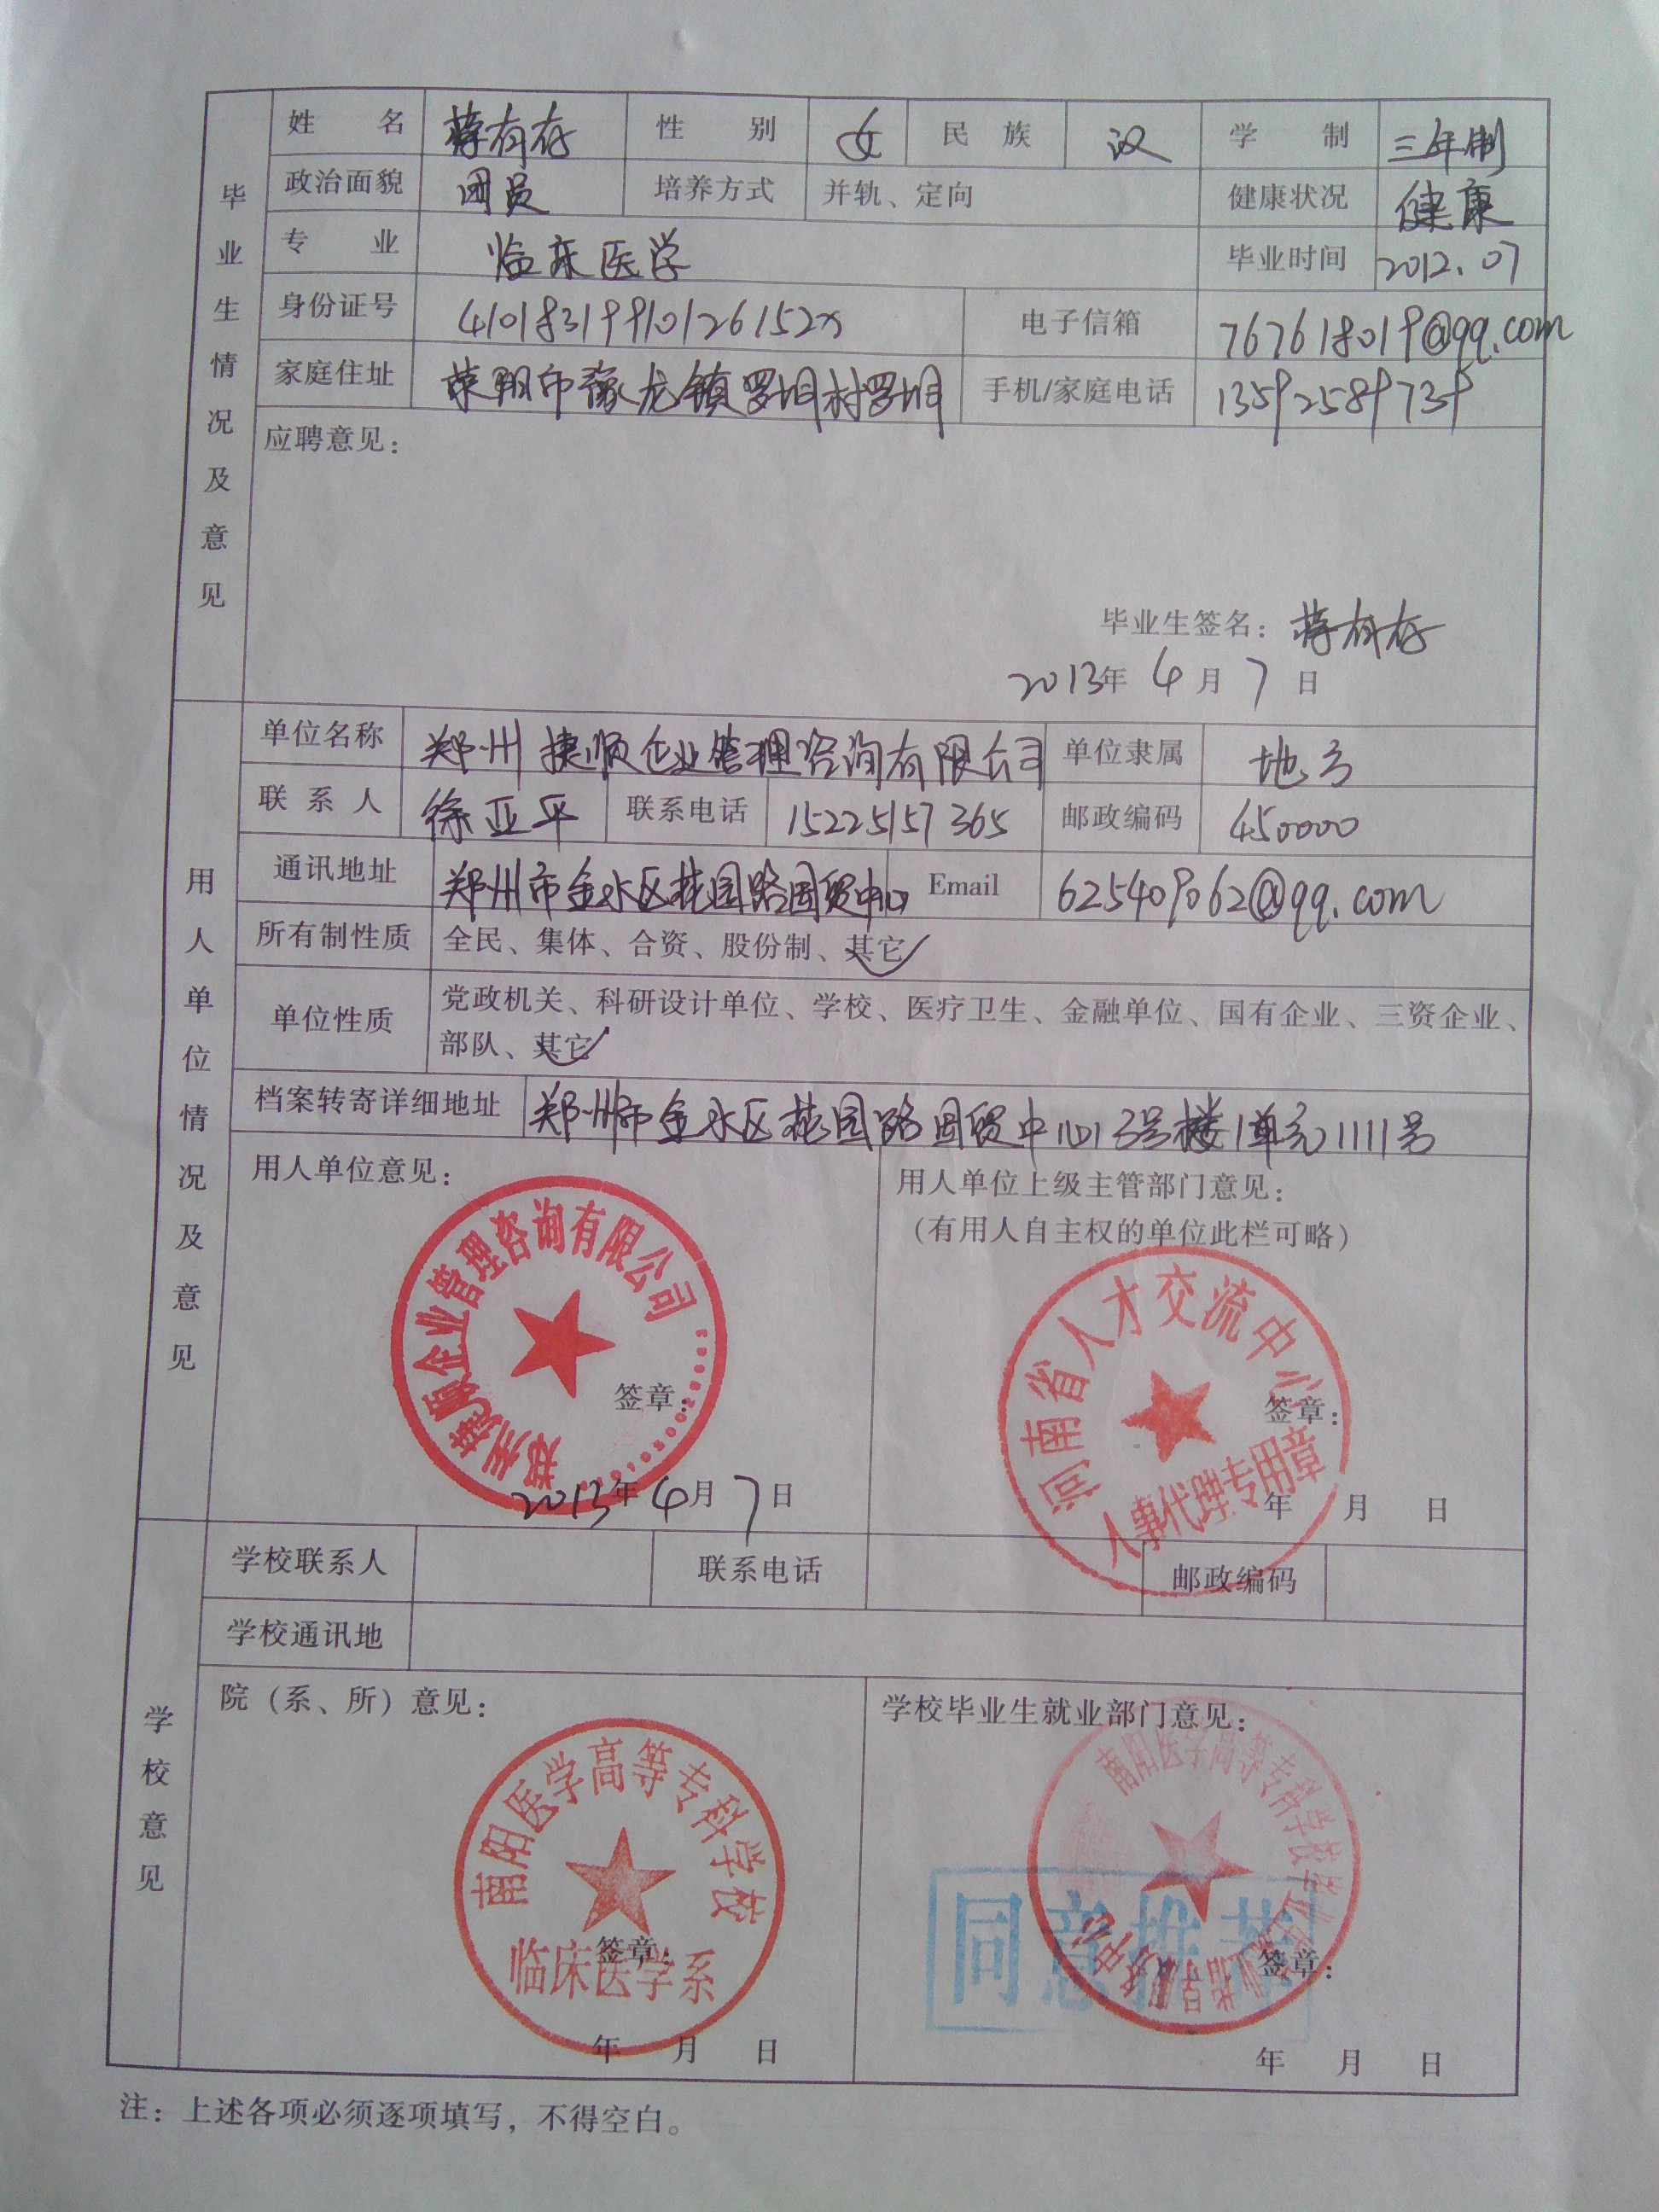 毕业生情况及意见
姓 名 蒋有存 性 别 女 民 族 汉 学 制 三年制
政治面貌 团员 培养方式 并轨、定向 健康状况 健康
专 业 临床医学 毕业时间 2012.07
身份证号 41018319910126152x 电子信箱 767618019@qq.com
家庭住址 荥阳市豫龙镇罗垌村罗垌 手机/家庭电话 13592589739
应聘意见：
毕业生签名：蒋有存
2013年 4月 7日
用人单位情况及意见
单位名称 郑州捷顺企业管理咨询有限公司 单位隶属 地方
联系人 徐亚平 联系电话 15225157365 邮政编码 450000
通讯地址 郑州市金水区花园路国贸中心 Email 625409062@qq.com
所有制性质 全民、集体、合资、股份制、其它
单位性质 党政机关、科研设计单位、学校、医疗卫生、金融单位、国有企业、三资企业、
部队、其它
档案转寄详细地址 郑州市金水区花园路国贸中心3号楼1单元1111号
用人单位意见：
郑州捷顺企业管理咨询有限公司
签章：
2013年 4月 7日
用人单位上级主管部门意见：
（有用人自主权的单位此栏可略）
河南省人才交流中心
签章：
人事代理专用章
年 月 日
学校意见
学校联系人 联系电话 邮政编码
学校通讯地
院（系、所）意见：
南阳医学高等专科学校
签章：
临床医学系
年 月 日
学校毕业生就业部门意见：
南阳医学高等专科学校毕业
同意推荐
签章：
年 月 日
注：上述各项必须逐项填写，不得空白。